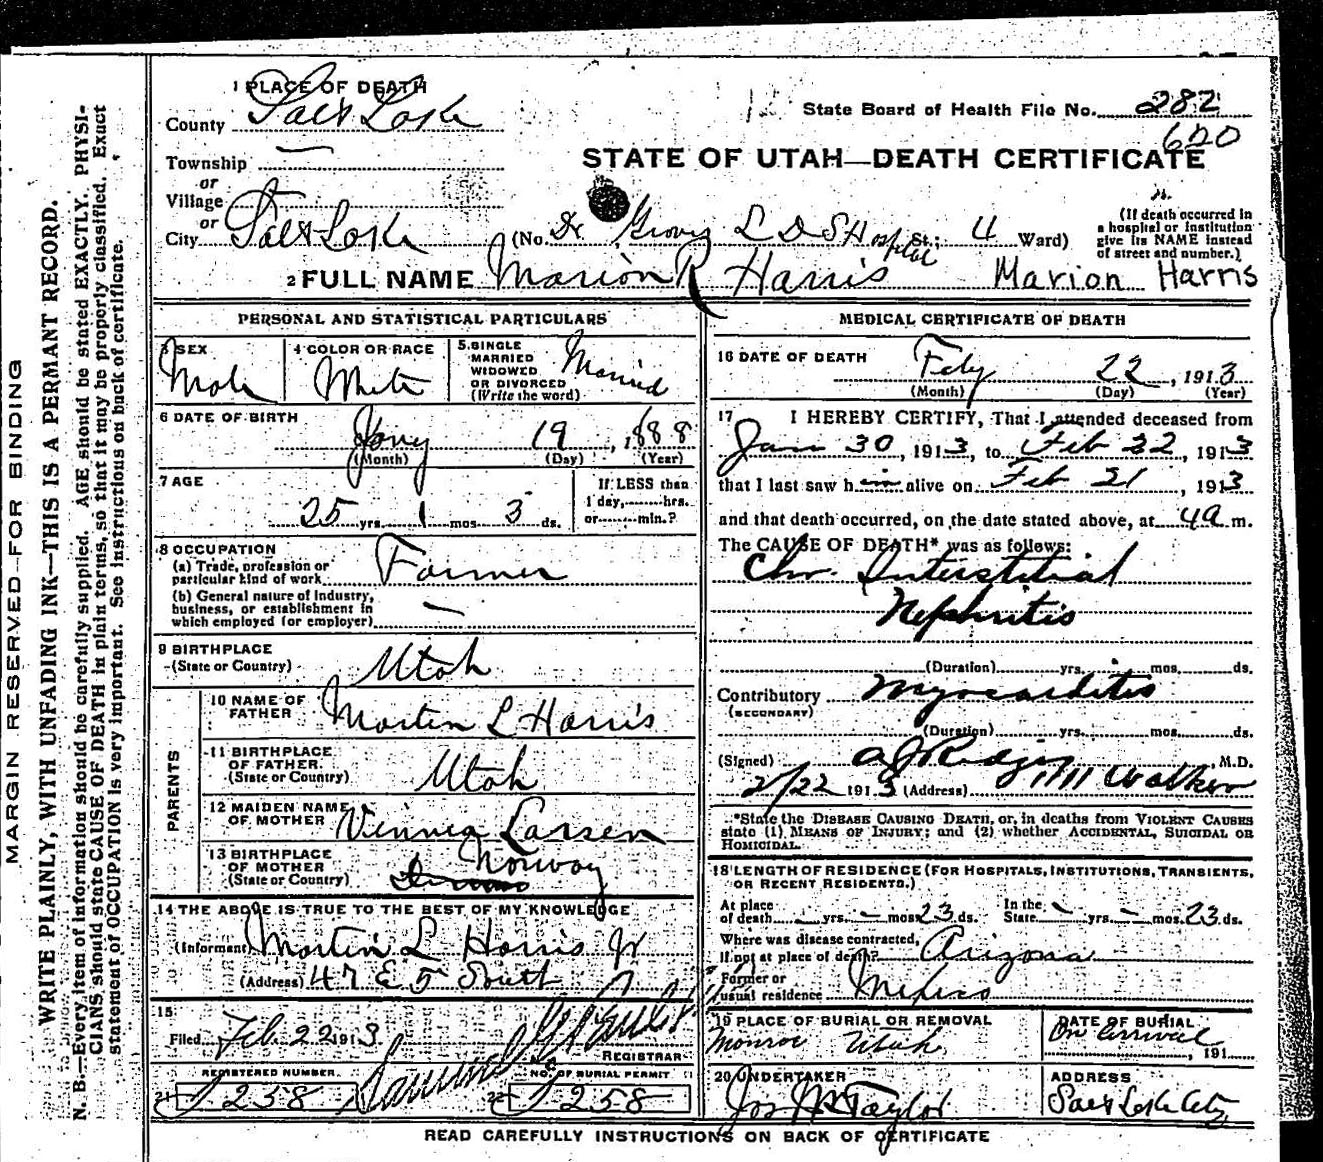 MARGIN RESERVED—FOR BINDING
WRITE PLAINLY, WITH UNFADING INK—THIS IS A PERMANT RECORD.
N. B.—Every item of information should be carefully supplied. AGE should be stated EXACTLY. PHYSI-
CIANS should state CAUSE OF DEATH in plain terms, so that it may be properly classified. Exact
statement of OCCUPATION is very important. See instructions on back of certificate.
1 PLACE OF DEATH
County Salt Lake
State Board of Health File No. 282
620
Township —
or
Village
or
City Salt Lake
STATE OF UTAH—DEATH CERTIFICATE
(No. Dr Groves L D S Hospital St.; 4 Ward)
(If death occurred in
a hospital or institution
give its NAME instead
of street and number.)
2 FULL NAME Marion R Harris Marion Harris
PERSONAL AND STATISTICAL PARTICULARS
3 SEX
Male
4 COLOR OR RACE
White
5 SINGLE
MARRIED
WIDOWED
OR DIVORCED
(Write the word)
Married
6 DATE OF BIRTH
Jany 19, 1888
(Month) (Day) (Year)
7 AGE
25 yrs. 1 mos. 3 ds.
If LESS than
1 day, hrs.
or min.?
8 OCCUPATION
(a) Trade, profession or
particular kind of work Farmer
(b) General nature of industry,
business, or establishment in
which employed (or employer) —
9 BIRTHPLACE
(State or Country) Utah
PARENTS
10 NAME OF
FATHER Martin L Harris
11 BIRTHPLACE
OF FATHER
(State or Country) Utah
12 MAIDEN NAME
OF MOTHER Vennea Larsen
13 BIRTHPLACE
OF MOTHER
(State or Country)
Norway
14 THE ABOVE IS TRUE TO THE BEST OF MY KNOWLEDGE
(Informant) Martin L Harris Jr
(Address) 47 E 5 South
15
Filed Feb. 22 1913
REGISTRAR
REGISTERED NUMBER
21 258
NO. OF BURIAL PERMIT
22 258
MEDICAL CERTIFICATE OF DEATH
16 DATE OF DEATH
Feby 22, 1913
(Month) (Day) (Year)
17 I HEREBY CERTIFY, That I attended deceased from
Jan 30, 1913, to Feb 22, 1913
that I last saw him alive on Feb 21, 1913
and that death occurred, on the date stated above, at 4 a m.
The CAUSE OF DEATH* was as follows:
Chr. Interstitial
Nephritis
(Duration) yrs. mos. ds.
Contributory Myocarditis
(SECONDARY)
(Duration) yrs. mos. ds.
(Signed) M.D.
2/22 1913 (Address) Walker
*State the DISEASE CAUSING DEATH, or, in deaths from VIOLENT CAUSES
state (1) MEANS OF INJURY; and (2) whether ACCIDENTAL, SUICIDAL OR
HOMICIDAL.
18 LENGTH OF RESIDENCE (FOR HOSPITALS, INSTITUTIONS, TRANSIENTS,
OR RECENT RESIDENTS.)
At place
of death — yrs. — mos. 23 ds.
In the
State — yrs. — mos. 23 ds.
Where was disease contracted,
If not at place of death? Arizona
Former or
usual residence Mexico
19 PLACE OF BURIAL OR REMOVAL
Monroe Utah
DATE OF BURIAL
On arrival, 191
20 UNDERTAKER
Jos Wm Taylor
ADDRESS
Salt Lake City
READ CAREFULLY INSTRUCTIONS ON BACK OF CERTIFICATE